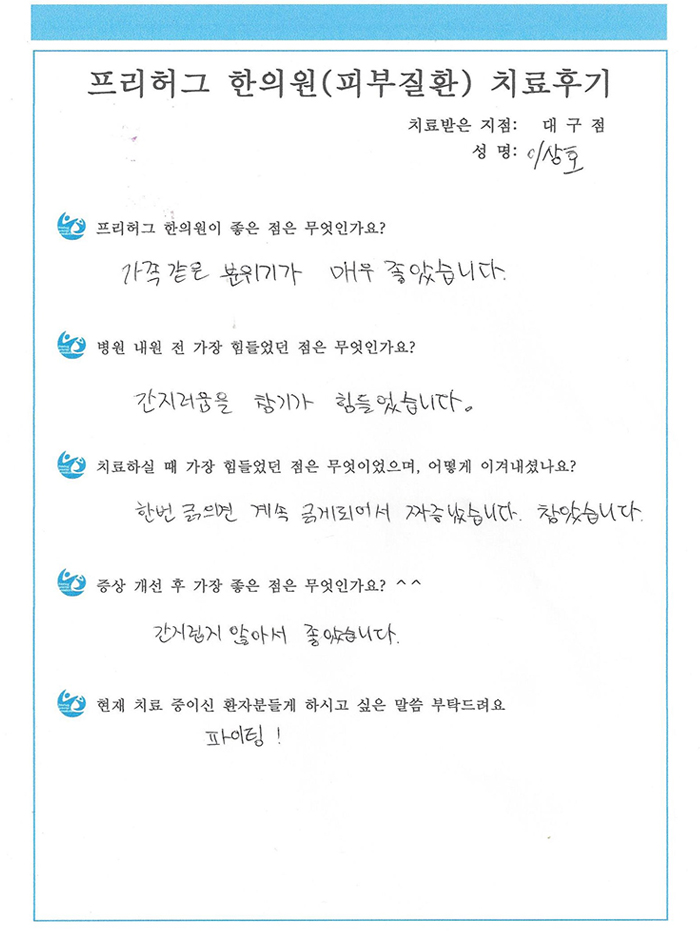 프리허그 한의원(피부질환) 치료후기
치료받은 지점: 대구점
성 명: 이상호
프리허그 한의원이 좋은 점은 무엇인가요?
가족같은 분위기가 매우 좋았습니다.
병원 내원 전 가장 힘들었던 점은 무엇인가요?
간지러움을 참기가 힘들었습니다.
치료하실 때 가장 힘들었던 점은 무엇이었으며, 어떻게 이겨내셨나요?
한번 긁으면 계속 긁게되어서 짜증났습니다. 참았습니다.
증상 개선 후 가장 좋은 점은 무엇인가요? ^^
간지럽지 않아서 좋았습니다.
현재 치료 중이신 환자분들게 하시고 싶은 말씀 부탁드려요
파이팅!